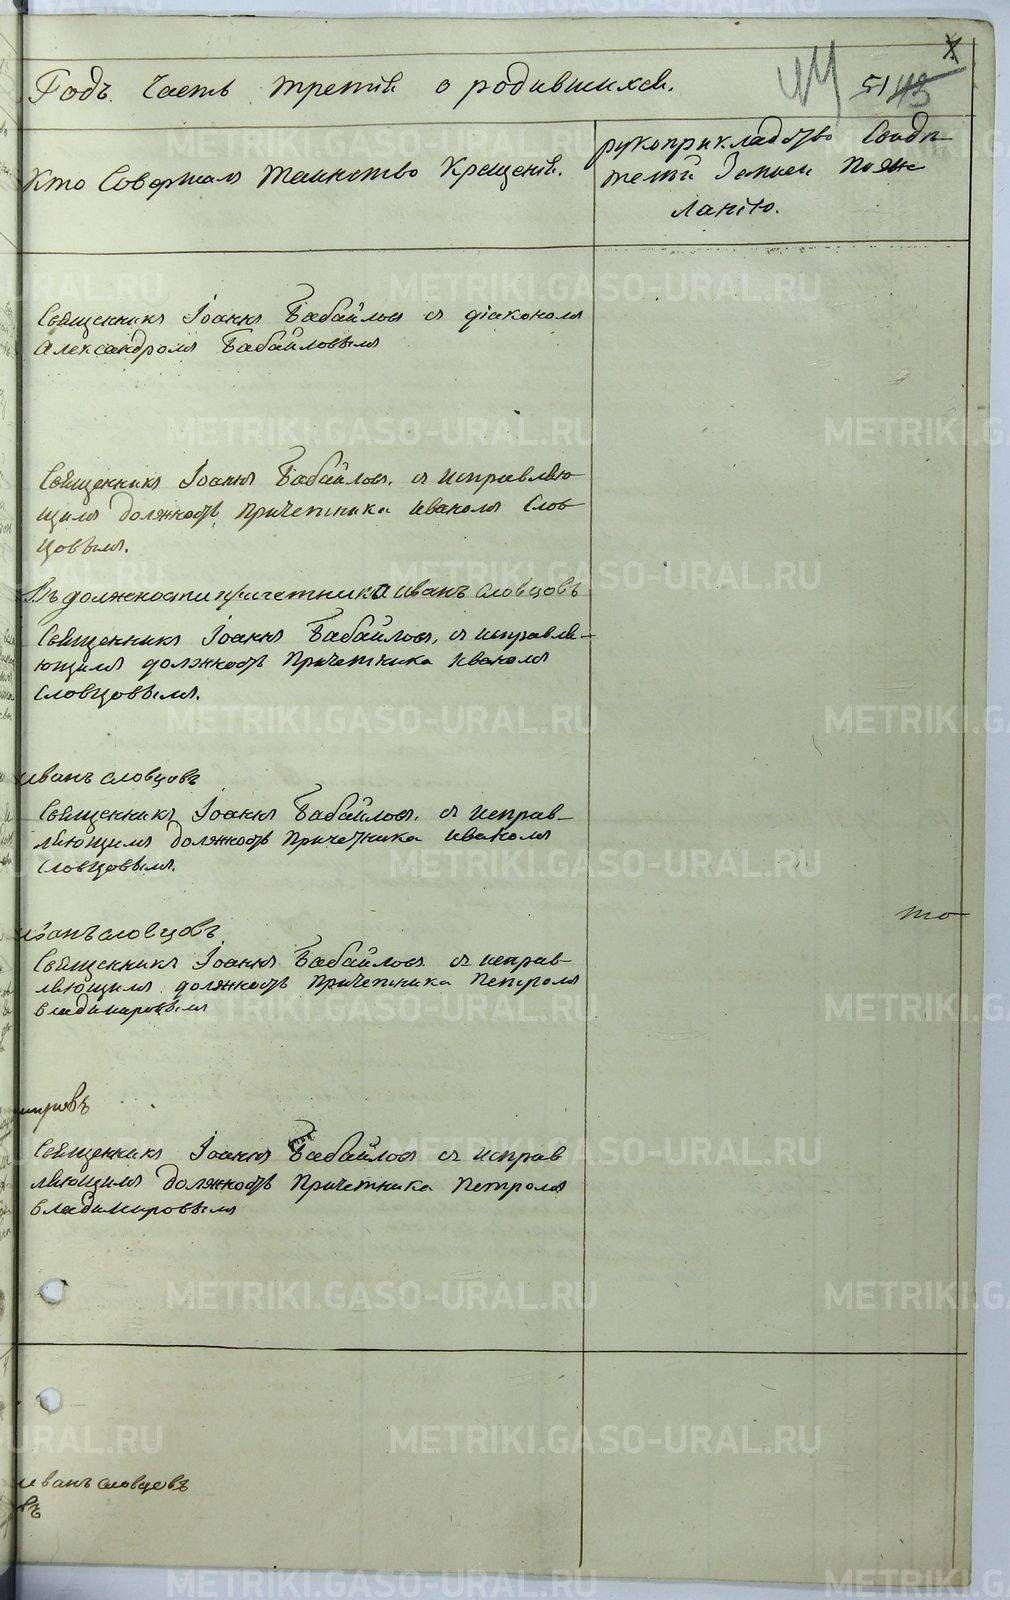 Годъ. Часть третія о родившихся.
51 43
Кто Совершалъ Таинство Крещенія.
рукоприкладство Свидѣ-
телей Записи По Же-
ланію.
Священникъ Іоаннъ Бабайловъ съ діакономъ
Александромъ Бабайловымъ
Священникъ Іоаннъ Бабайловъ, съ исправляю
щимъ должность Причетника Иваномъ Слов
цовымъ.
Въ должности причетника иванъ словцовъ
Священникъ Іоаннъ Бабайловъ, съ исправля-
ющимъ должность Причетника Иваномъ
Словцовымъ.
иванъ словцовъ
Священникъ Іоаннъ Бабайловъ, съ исправ-
ляющимъ должность Причетника Иваномъ
Словцовымъ.
иванъ словцовъ
то
Священникъ Іоаннъ Бабайловъ съ исправ-
ляющимъ должность Причетника Петромъ
Владимировымъ
мировъ
Священникъ Іоаннъ Бабайловъ съ исправ
ляющимъ должность Причетника Петромъ
Владимировымъ
иванъ словцовъ
въ
METRIKI.GASO-URAL.RU